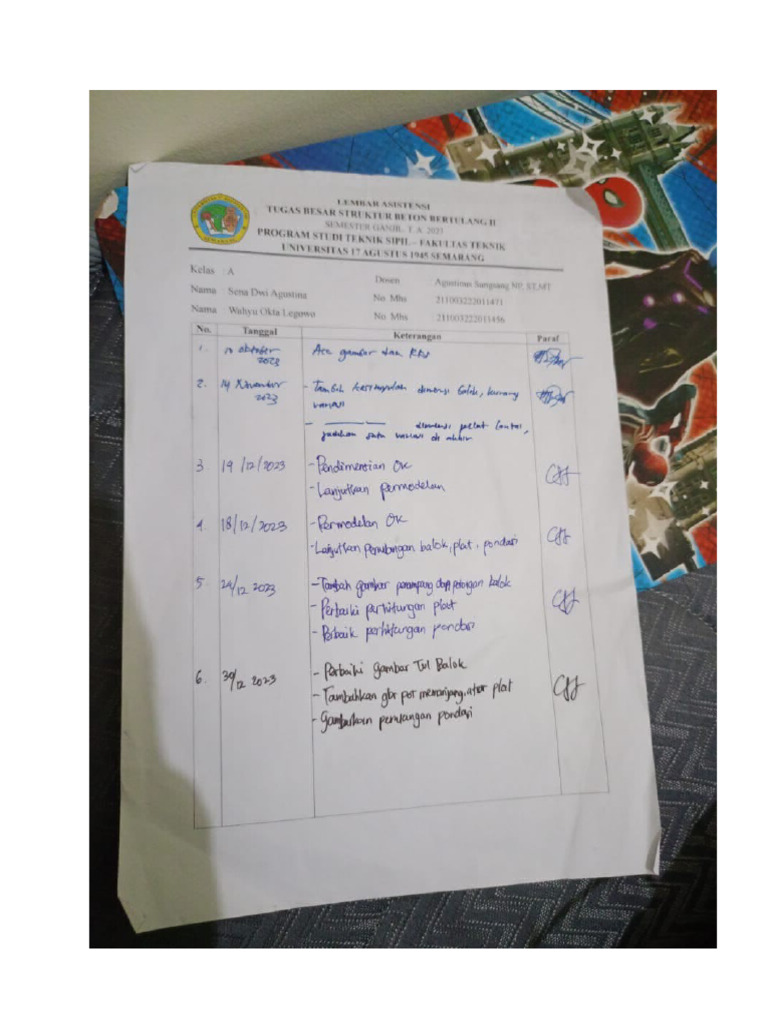 LEMBAR ASISTENSI
TUGAS BESAR STRUKTUR BETON BERTULANG II
SEMESTER GANJIL, T. A. 2023
PROGRAM STUDI TEKNIK SIPIL – FAKULTAS TEKNIK
UNIVERSITAS 17 AGUSTUS 1945 SEMARANG
Kelas : A Dosen : Agustinus Sungsang NP, ST,MT
Nama : Sena Dwi Agustina No Mhs : 211003222011471
Nama : Wahyu Okta Legowo No Mhs : 211003222011456
No. Tanggal Keterangan Paraf
1. 10 oktober 2023 Acc gambar dan
2. 14 November 2023 - Tambah kesimpulan dimensi balok, kurang
variasi
- dimensi pelat lantai,
jadikan satu variasi di akhir
3 19/12/2023 - Pendimensian OK
- Lanjutkan permodelan
4. 18/12/2023 - Permodelan OK
- Lanjutkan penulangan balok, plat, pondasi
5 24/12 2023 - Tambah gambar penampang dan potongan balok
- Perbaiki perhitungan plat
- Perbaik perhitungan pondasi
6. 30/12 2023 - Perbaiki gambar Tul Balok
- Tambahkan gbr pot memanjang. plat
- Gambarkan penulangan pondasi